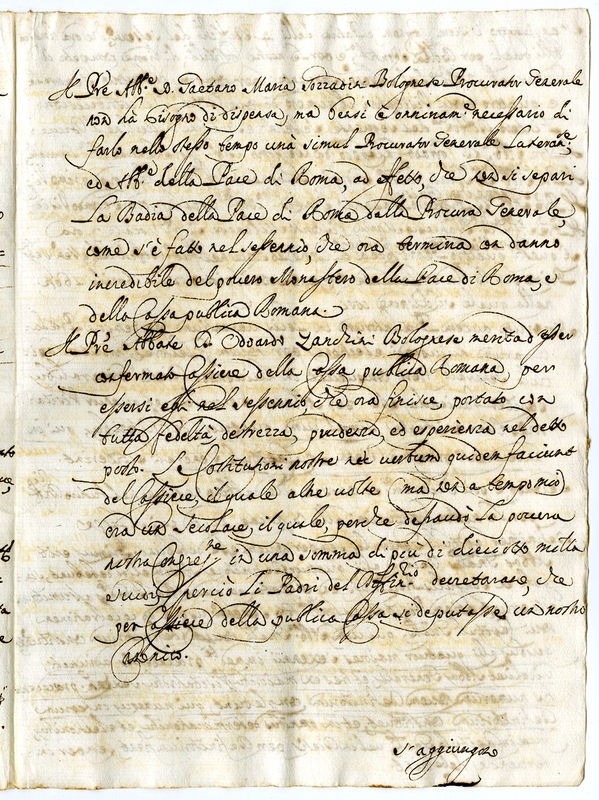 Il Pre Abb.e D. Gaetano Maria Tozzadin Bolognese Procurator Generale
non hà bisogno di dispensa, ma bensì è onninam.e necessario di
farlo nello stesso tempo unà simul Procurator Generale Lateran.e,
ed Abb.e della Pace di Roma, ad effetto, che non si separi
La Badia della Pace di Roma dalla Procura Generale,
come s'è fatto nel sessennio, che ora termina con danno
incredibile del povero Monastero della Pace di Roma, e
della Cassa publica Romana.
Il Pre Abbate D. Odoardo Zanchini Bolognese merita d'esser
confermato Cassiere della Cassa publica Romana, per
essersi egli nel sessennio, che ora finisce, portato con
tutta fedeltà, destrezza, prudenza, ed esperienza nel detto
posto. Le Costituzioni nostre nec verbum quidem faciunt
del Cassiere, il quale altre volte (ma non a tempo mio)
era un Secolare, il quale, perche defraudò la povera
nostra Congre.ne in una somma di più di dieciotto milla
scudi, perciò li Padri del Deffin.rio decretarono, che
per Cassiere della publica Cassa si deputasse un nostro
Canonico.
s'aggiunga